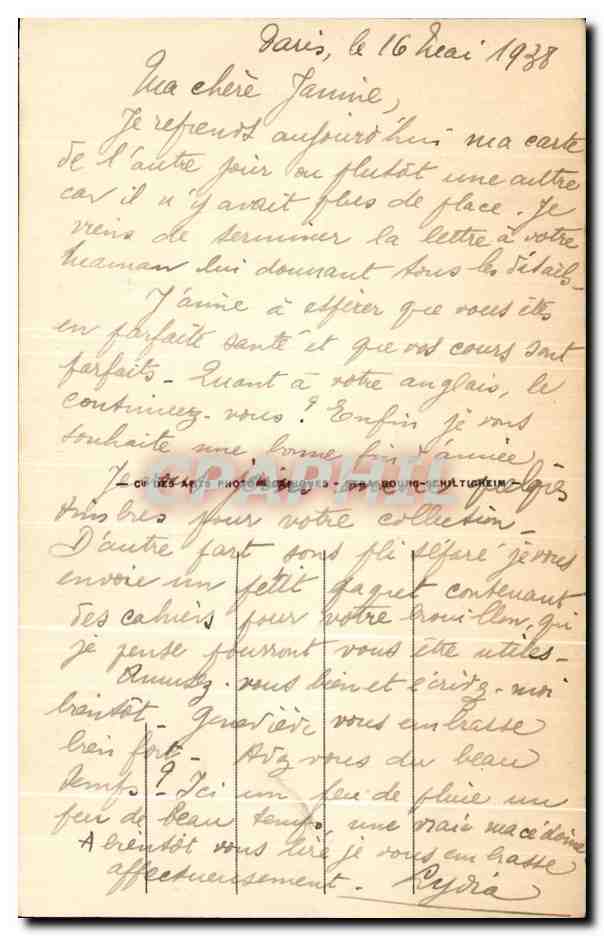 Paris, le 16 Mai 1938
Ma chère Janine,
Je reprends aujourd'hui ma carte
de l'autre jour ou plutôt une autre
car il n'y avait plus de place. Je
viens de terminer la lettre à votre
Maman lui donnant tous les détails_
J'aime à espérer que vous êtes
en parfaite santé et que vos cours sont
parfaits_ Quant à votre anglais, le
continuez-vous? Enfin je vous
souhaite une bonne fin d'année,
Je
CIE DES ARTS PHOTOMÉCANIQUES - STRASBOURG-SCHILTIGHEIM
CPAPHIL
timbres pour votre collection_
D'autre part sous pli séparé je vous
envoie un petit paquet contenant
des cahiers pour votre brouillon, qui
je pense pourront vous être utiles_
Amusez-vous bien et écrivez-moi
bientôt_ Geneviève vous embrasse
bien fort_ Avez vous du beau
temps? Ici un peu de pluie un
peu de beau temps, une vraie macédoine
A bientôt vous lire je vous embrasse
affectueusement. Lydia